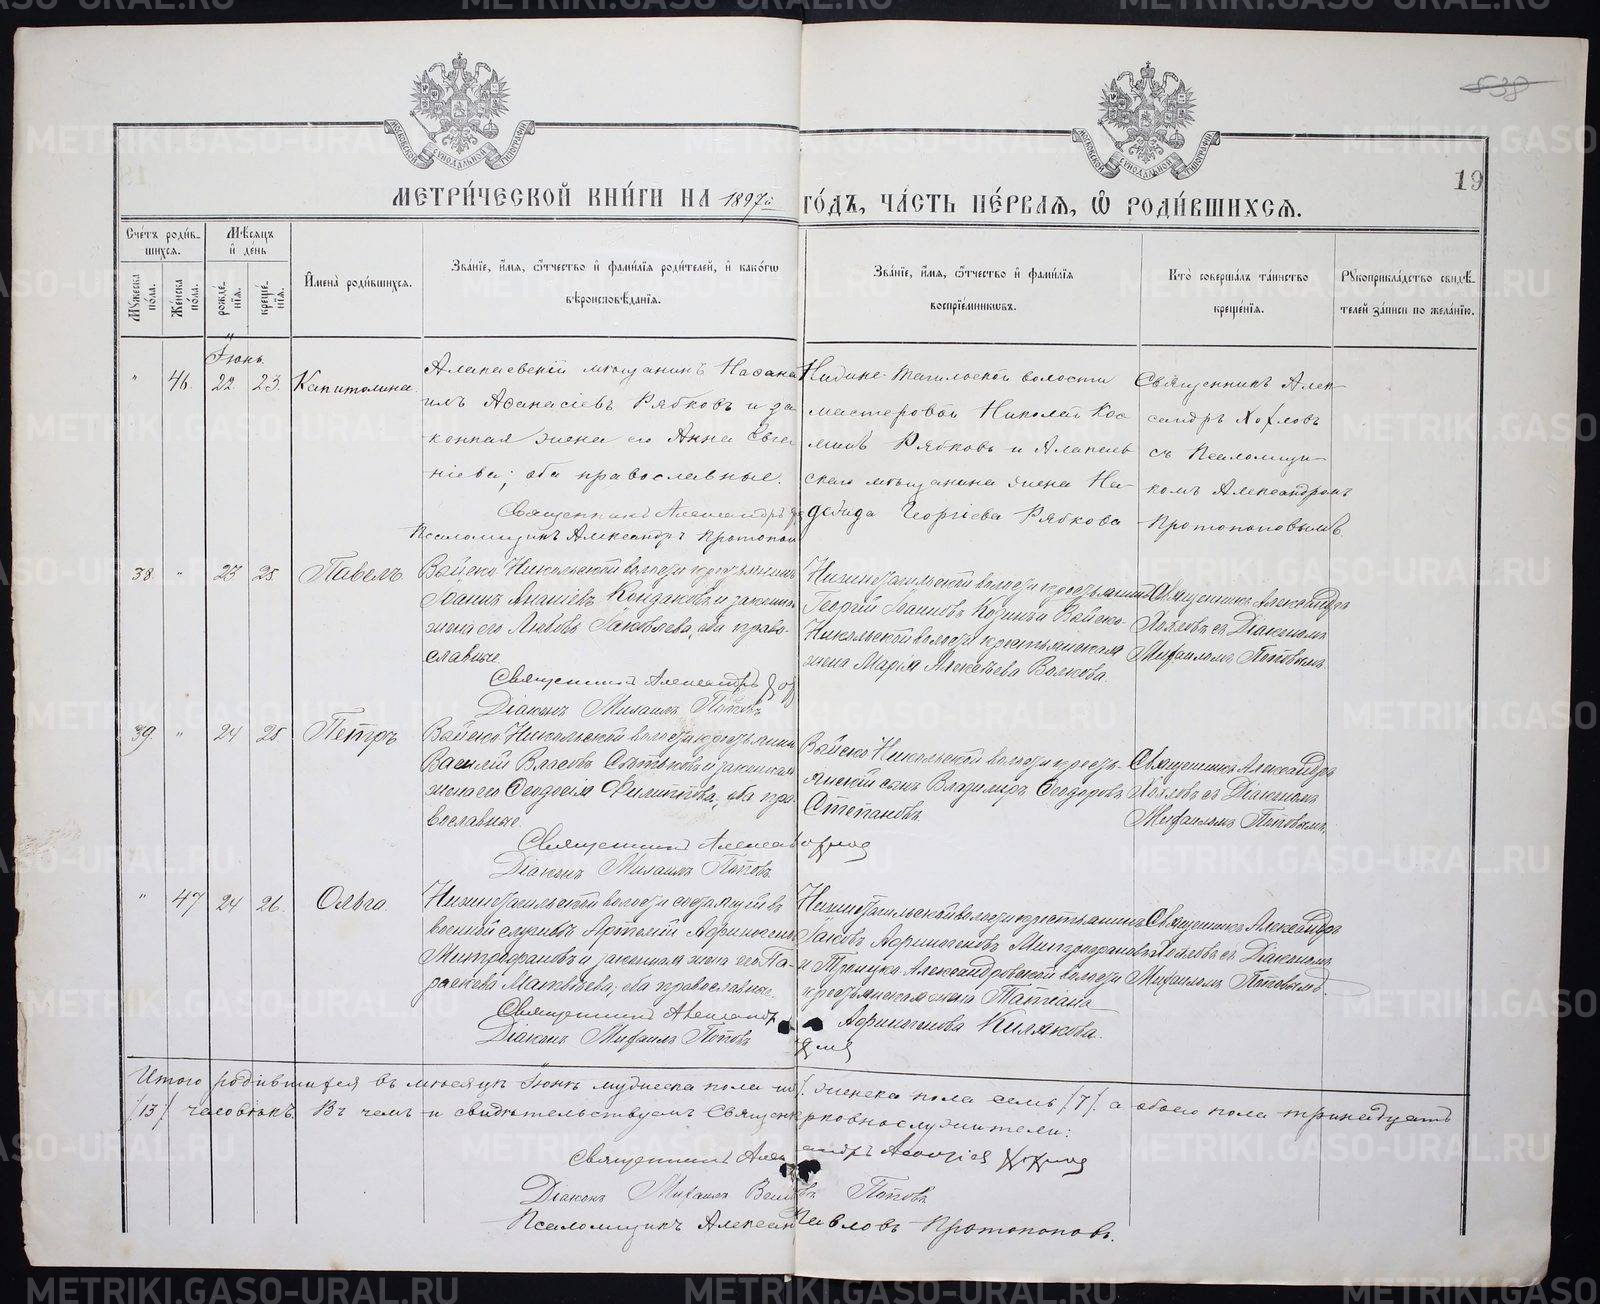 538
19
МОСКОВСКОЙ СУНОДАЛЬНОЙ ТИПОГРАФИИ
МОСКОВСКОЙ СУНОДАЛЬНОЙ ТИПОГРАФИИ
МЕТРИ́ЧЕСКОЙ КНИ́ГИ НА 1897й ГО́ДЪ, ЧА́СТЬ ПЕ́РВАѦ, Ѡ РОДИ́ВШИХСѦ.
Сче́тъ роди́в-
шихсѧ.
Мꙋжеска по́ла.
Же́нска по́ла.
Мѣ́сѧцъ
и҆ де́нь
рожде́-нїѧ.
креще́-нїѧ.
И҆мена̀ роди́вшихсѧ.
Зва́нїе, и҆́мѧ, ѻ҆́тчество и҆ фами́лїѧ роди́телей, и҆ како́гѡ
вѣроисповѣ́данїѧ.
Зва́нїе, и҆́мѧ, ѻ҆́тчество и҆ фами́лїѧ
воспрїе́мникѡвъ.
Кто̀ соверша́лъ та́инство
креще́нїѧ.
Рꙋкоприкла́дство свидѣ́-
телей за́писи по жела́нїю.
Іюнь.
" 46. 22. 23. Капитолина
Алапаевскій мѣщанинъ Наѳана
илъ Аѳанасіевъ Рябковъ и за-
конная жена его Анна Евге-
ніева; оба православные.
Священникъ Александръ
Псаломщикъ Александръ Протопопов
Нижне-Тагильской волости
мастеровой Николай Кос-
минъ Рябковъ и Алапаев-
скаго мѣщанина жена На-
дежда Георгіева Рябкова
Священникъ Алек-
сандръ Хохловъ
съ Псаломщи-
комъ Александромъ
Протопоповымъ.
38. " 23 25 Павелъ
Войско Никольской волости крестьянинъ
Іоаннъ Ананіевъ Кондаковъ и законная
жена его Любовь Іаковлева, оба право-
славные.
Священникъ Александръ Хох
Діаконъ Михаилъ Поповъ
Нижнетагильской волости крестьянинъ
Георгій Іоанновъ Козинъ и Войско-
Никольской волости крестьянская
жена Марія Алексѣева Волкова.
Священникъ Александръ
Хохловъ съ Діакономъ
Михаиломъ Поповымъ.
39. " 24 25 Петръ
Войско Никольской волости крестьянинъ
Василій Власовъ и законная
жена его Ѳеодосія Филиппова; оба пра-
вославные
Священникъ Алексан
Діаконъ Михаилъ Поповъ.
Войско Никольской волости кресть-
янскій сынъ Владиміръ Ѳеодоровъ
Степановъ.
Хохлов
Священникъ Александръ
Хохловъ съ Діакономъ
Михаиломъ Поповымъ.
" 47 24 26. Ольга.
Нижнетагильской волости состоящій въ
военной службѣ Артемій Афиногеновъ
Митрофановъ и законная жена его Па-
раскева Матвѣева; оба православные.
Священникъ Александр
Діаконъ Михаилъ Поповъ
Нижнетагильской волости крестьянинъ
Іаковъ Афиногеновъ Митрофановъ
и Троицко Александровской волости
крестьянская жена Татіана
Афиногенова
Священникъ Александръ
Хохловъ съ Діакономъ
Михаиломъ Поповымъ.
Итого родившихся въ мѣсяцѣ Іюнѣ мужеска пола женска пола семь /7/. а обоего пола тринадцать
/13/ человѣкъ. Въ чемъ и свидѣтельствуемъ Священно церковнослужители:
Священникъ Александръ Хохлов
Діаконъ Михаилъ Поповъ
Псаломщикъ Алексан Павловъ Протопоповъ.
METRIKI.GASO-URAL.RU